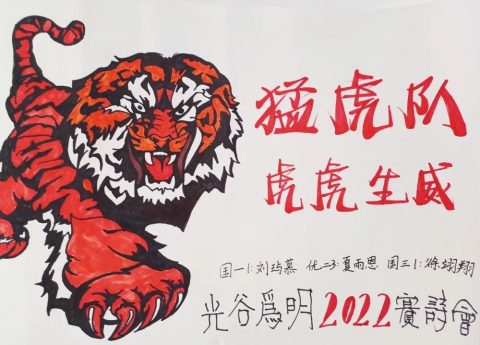 猛虎队
虎虎生威
国一1:刘玙慕 优二3:夏雨恩 国三1:徐翊翔
光谷爲明2022賽詩會